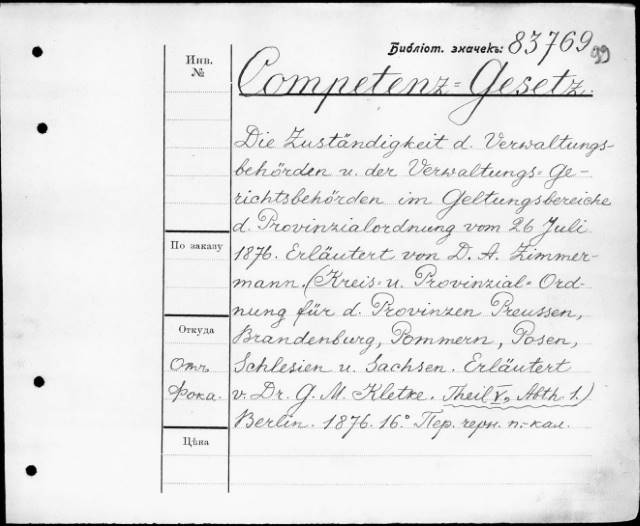 Библіот. значекъ: 83769
99
Инв.
№
Competenz=Gesetz.
Die Zuständigkeit d. Verwaltungs-
behörden u. der Verwaltungs=Ge-
richtsbehörden im Geltungsbereiche
d. Provinzialordnung vom 26 Juli
1876. Erläutert von D. A. Zimmer-
mann. (Kreis- u. Provinzial=Ord-
nung für d. Provinzen Preussen,
Brandenburg, Pommern, Posen,
Schlesien u. Sachsen. Erläutert
v. Dr. G. M. Kletke. Theil V, Abth 1.)
Berlin. 1876. 16° Пер. черн. п.-кал.
По заказу
Откуда
Отъ
Фока.
Цѣна